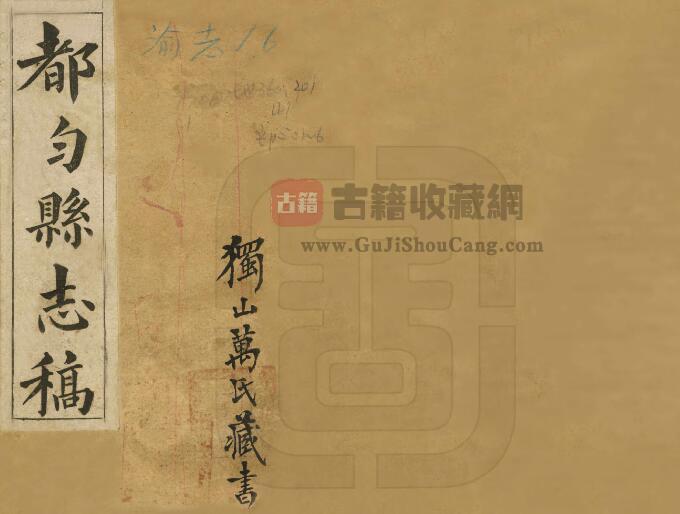 都勻縣志稿
渝志16
獨山萬氏藏書
古籍
古籍收藏網
www.GuJiShouCang.com